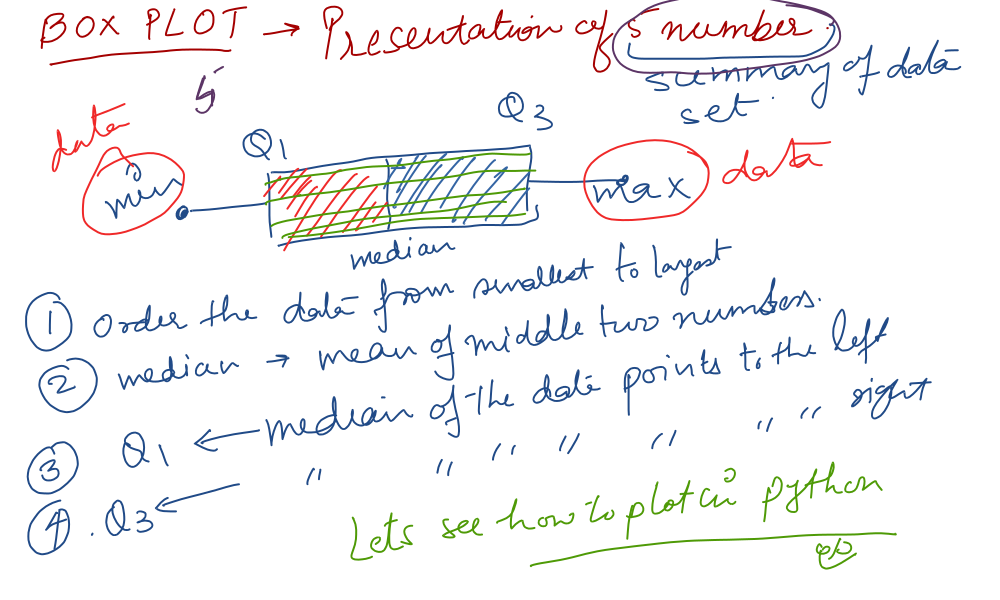 BOX PLOT → Presentation of 5 number
summary of data
set.
5
data
Q1
Q3
min
max
data
median
① Order the data from smallest to largest
② median → mean of middle two numbers.
③ Q1 ← median of the data points to the left
④. Q3 ← " " " " " " " right
Lets see how to plot in python